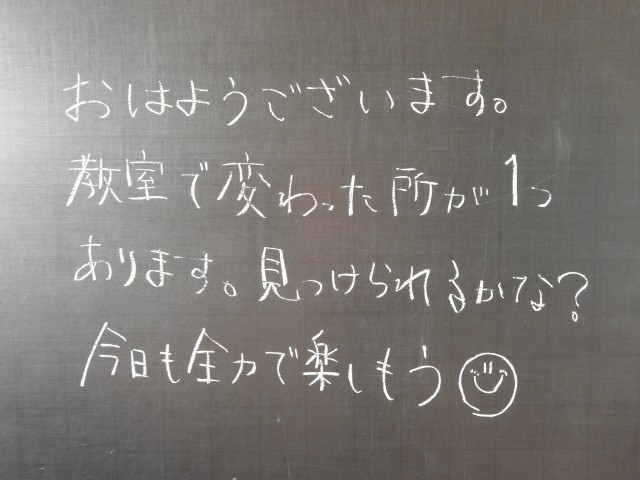 おはようございます。
教室で変わった所が1つ
あります。見つけられるかな?
今日も全力で楽しもう